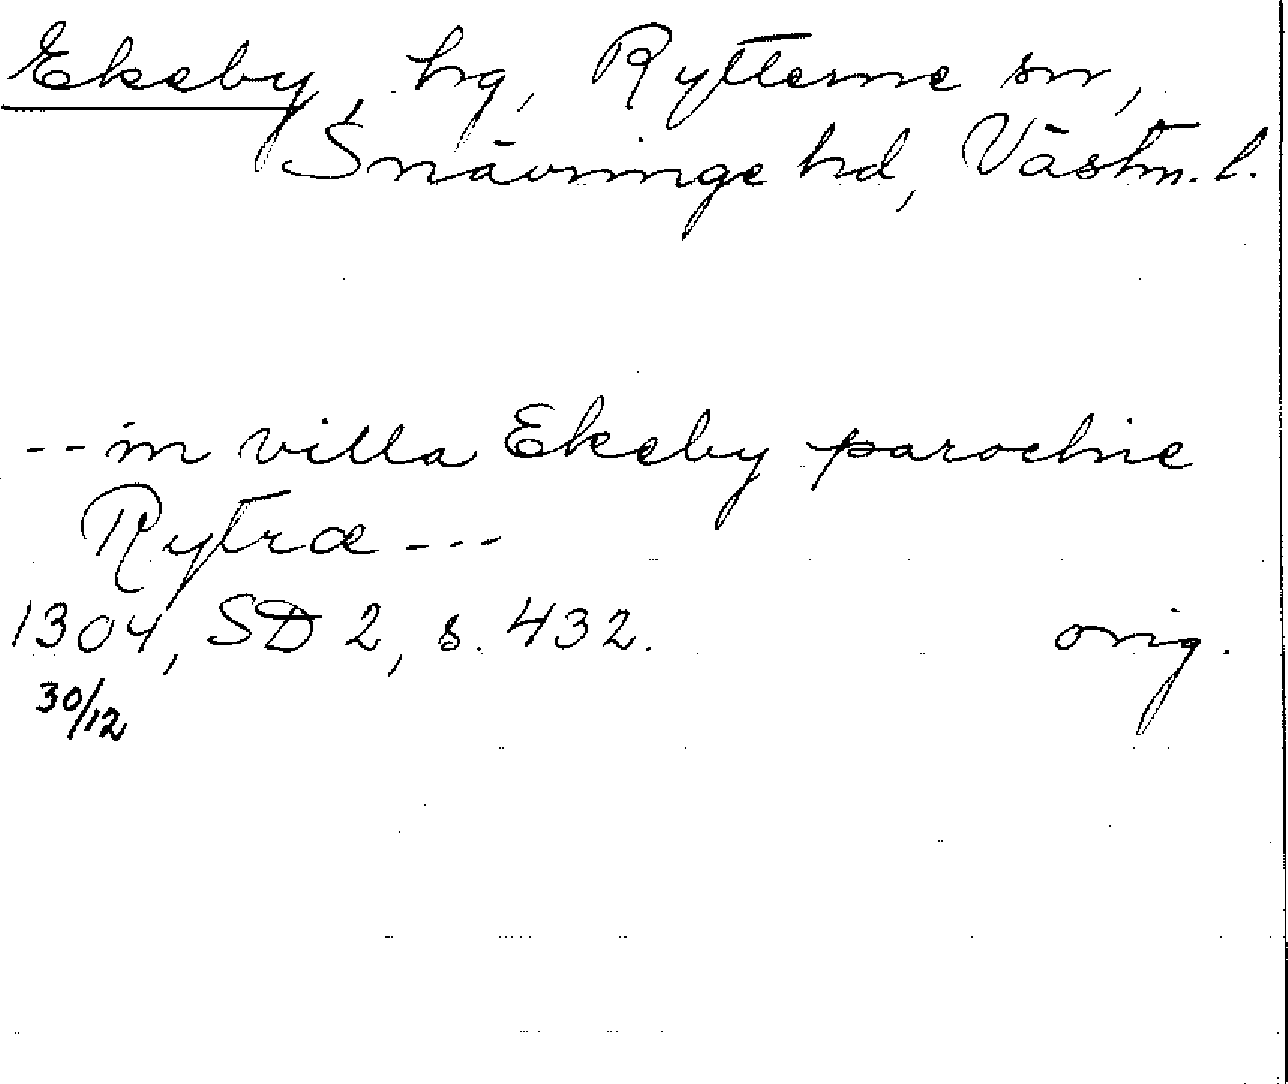 Ekeby, hg, Rytterne sn,
Snävringe hd, Västm. l.
-- in villa Ekeby parochie
Rytræ ---
1304, SD 2, s. 432. orig.
30/12